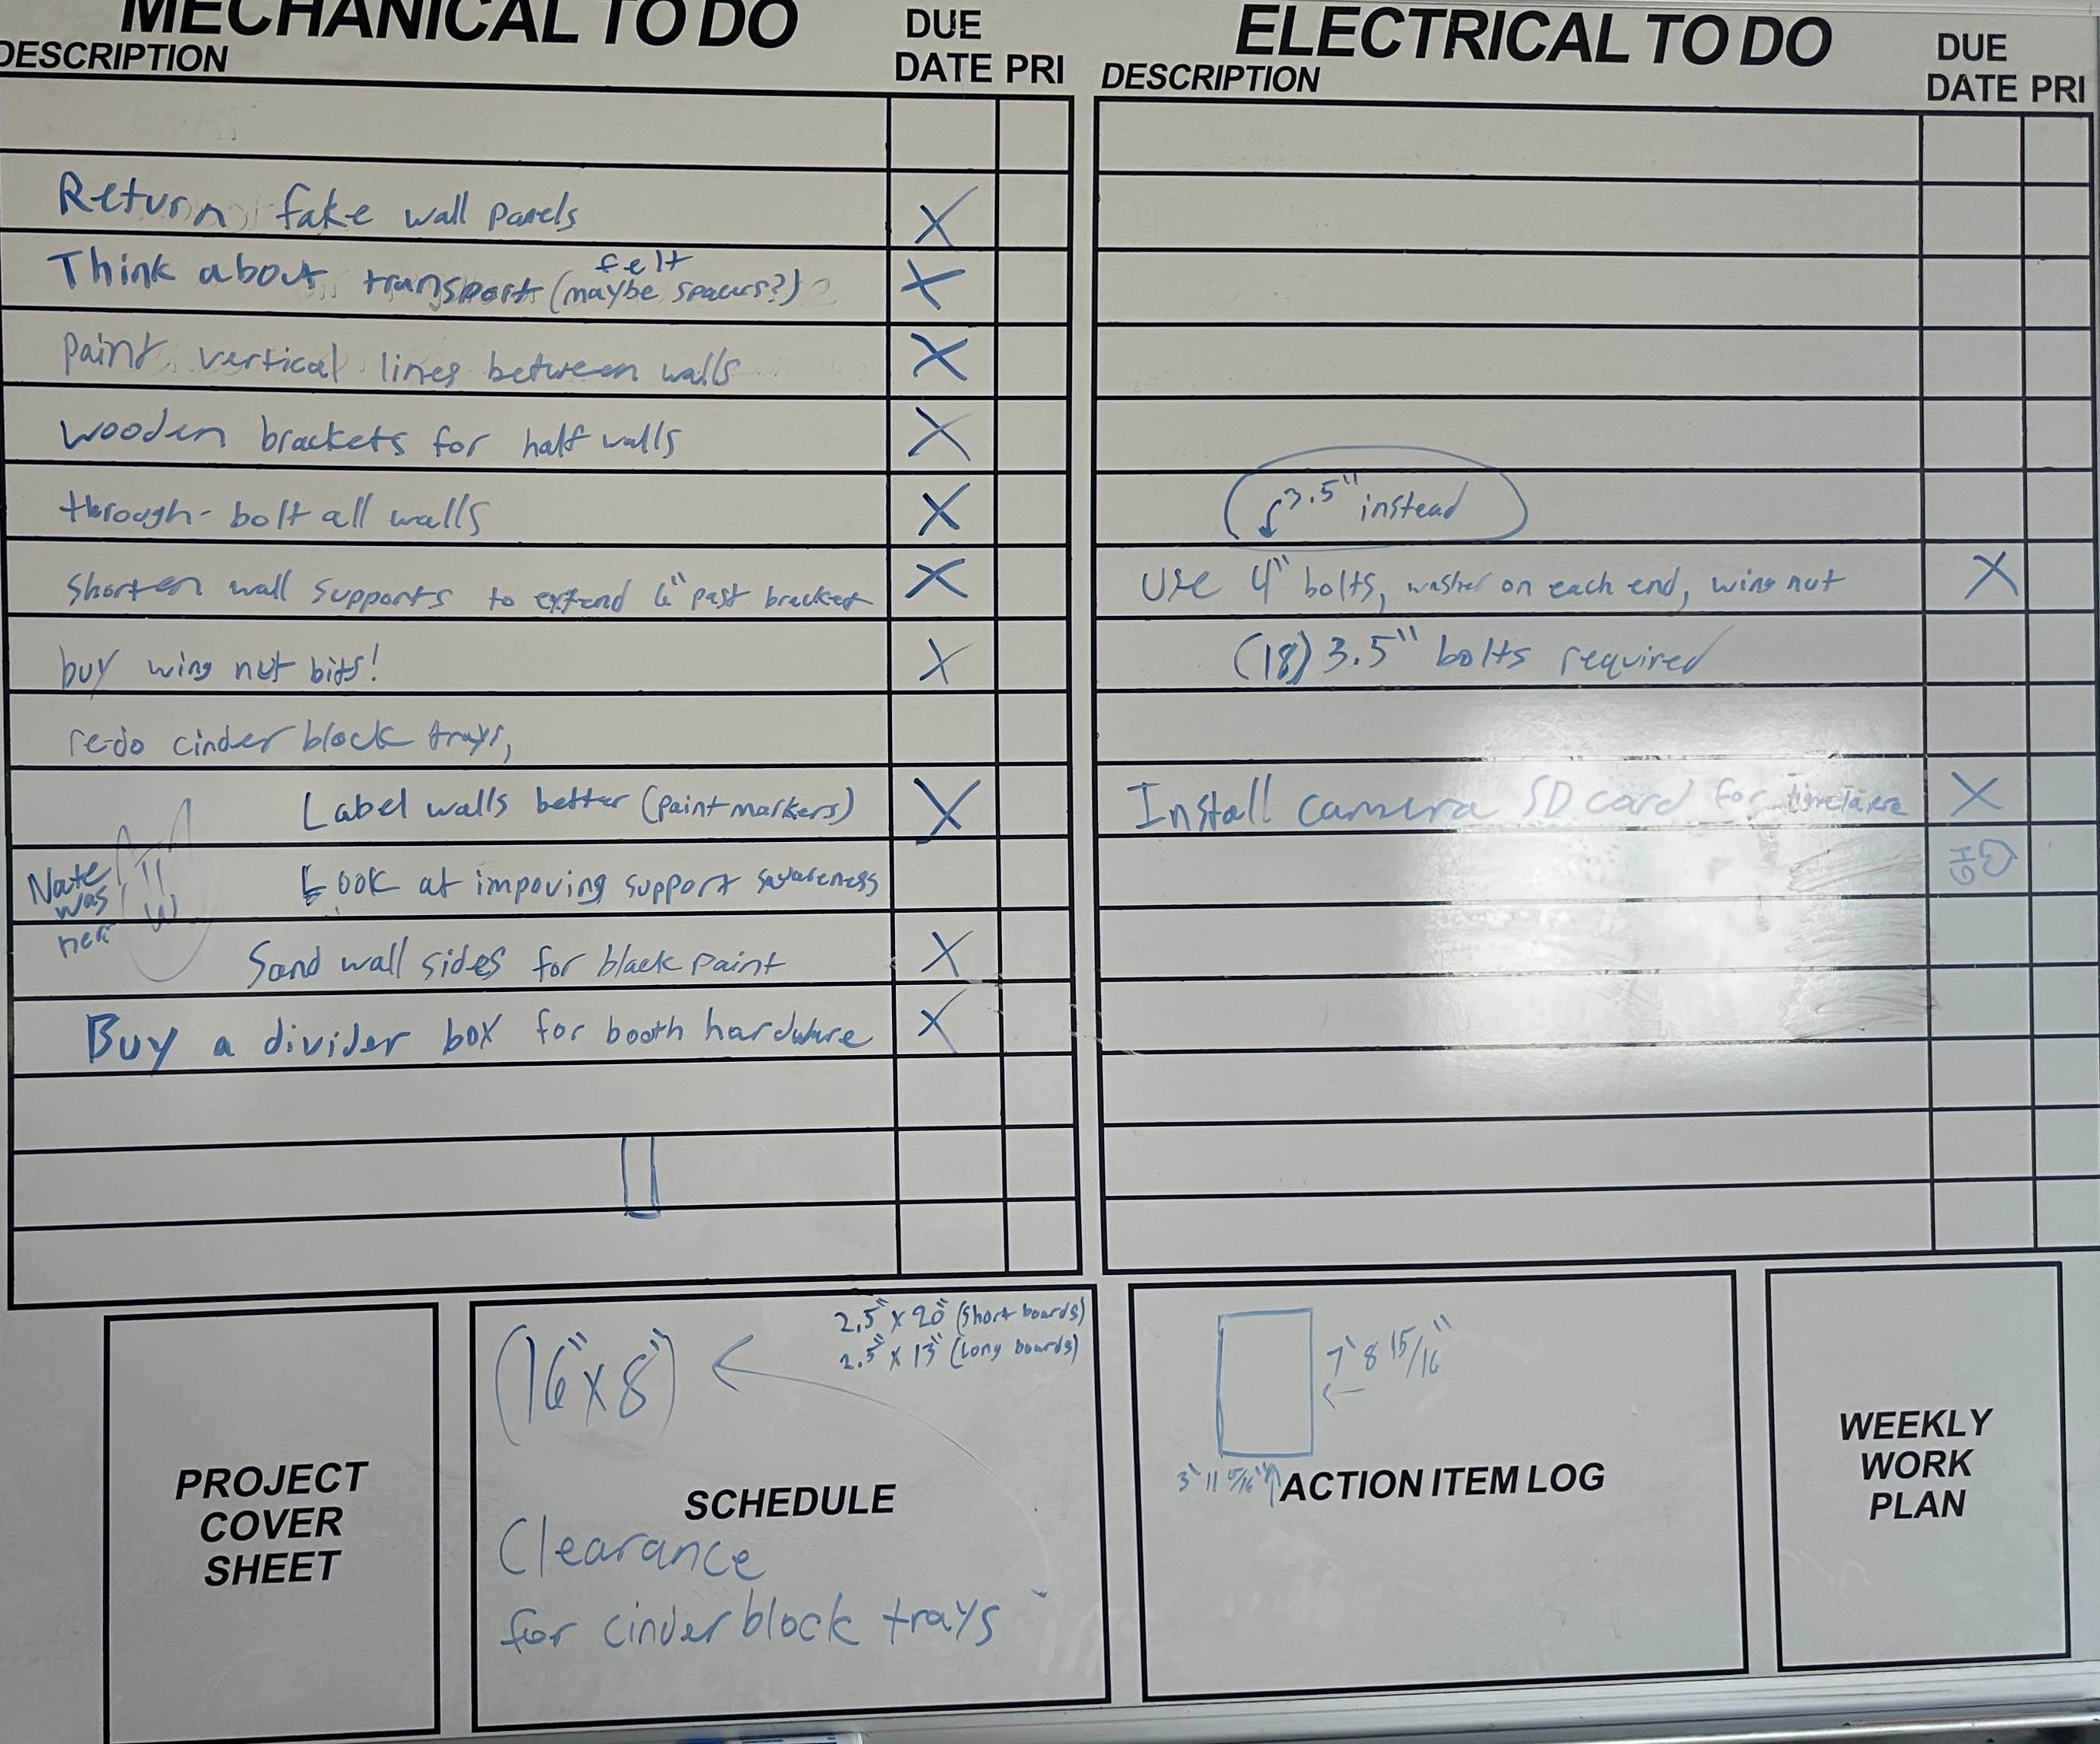 MECHANICAL TO DO
DUE
DESCRIPTION
DATE PRI
Return fake wall panels X
felt
Think about transport (maybe spacers?) X
paint vertical lines between walls X
Wooden brackets for half walls X
through-bolt all walls X
shorten wall supports to extend 6" past bracket X
buy wing nut bits! X
re-do cinder block trays,
Label walls better (paint markers) X
Look at impoving support squareness
Nate
was
her
Sand wall sides for black paint X
Buy a divider box for booth hardware X
ELECTRICAL TO DO
DUE
DESCRIPTION
DATE PRI
3.5" instead
Use 4" bolts, washer on each end, wing nut X
(18) 3.5" bolts required
Install camera SD card for timelapse X
PROJECT
COVER
SHEET
2.5" x 20" (short boards)
2.5" x 13" (long boards)
(16" x 8")
SCHEDULE
Clearance
for cinder block trays
7' 8 15/16"
3' 11 15/16"
ACTION ITEM LOG
WEEKLY
WORK
PLAN